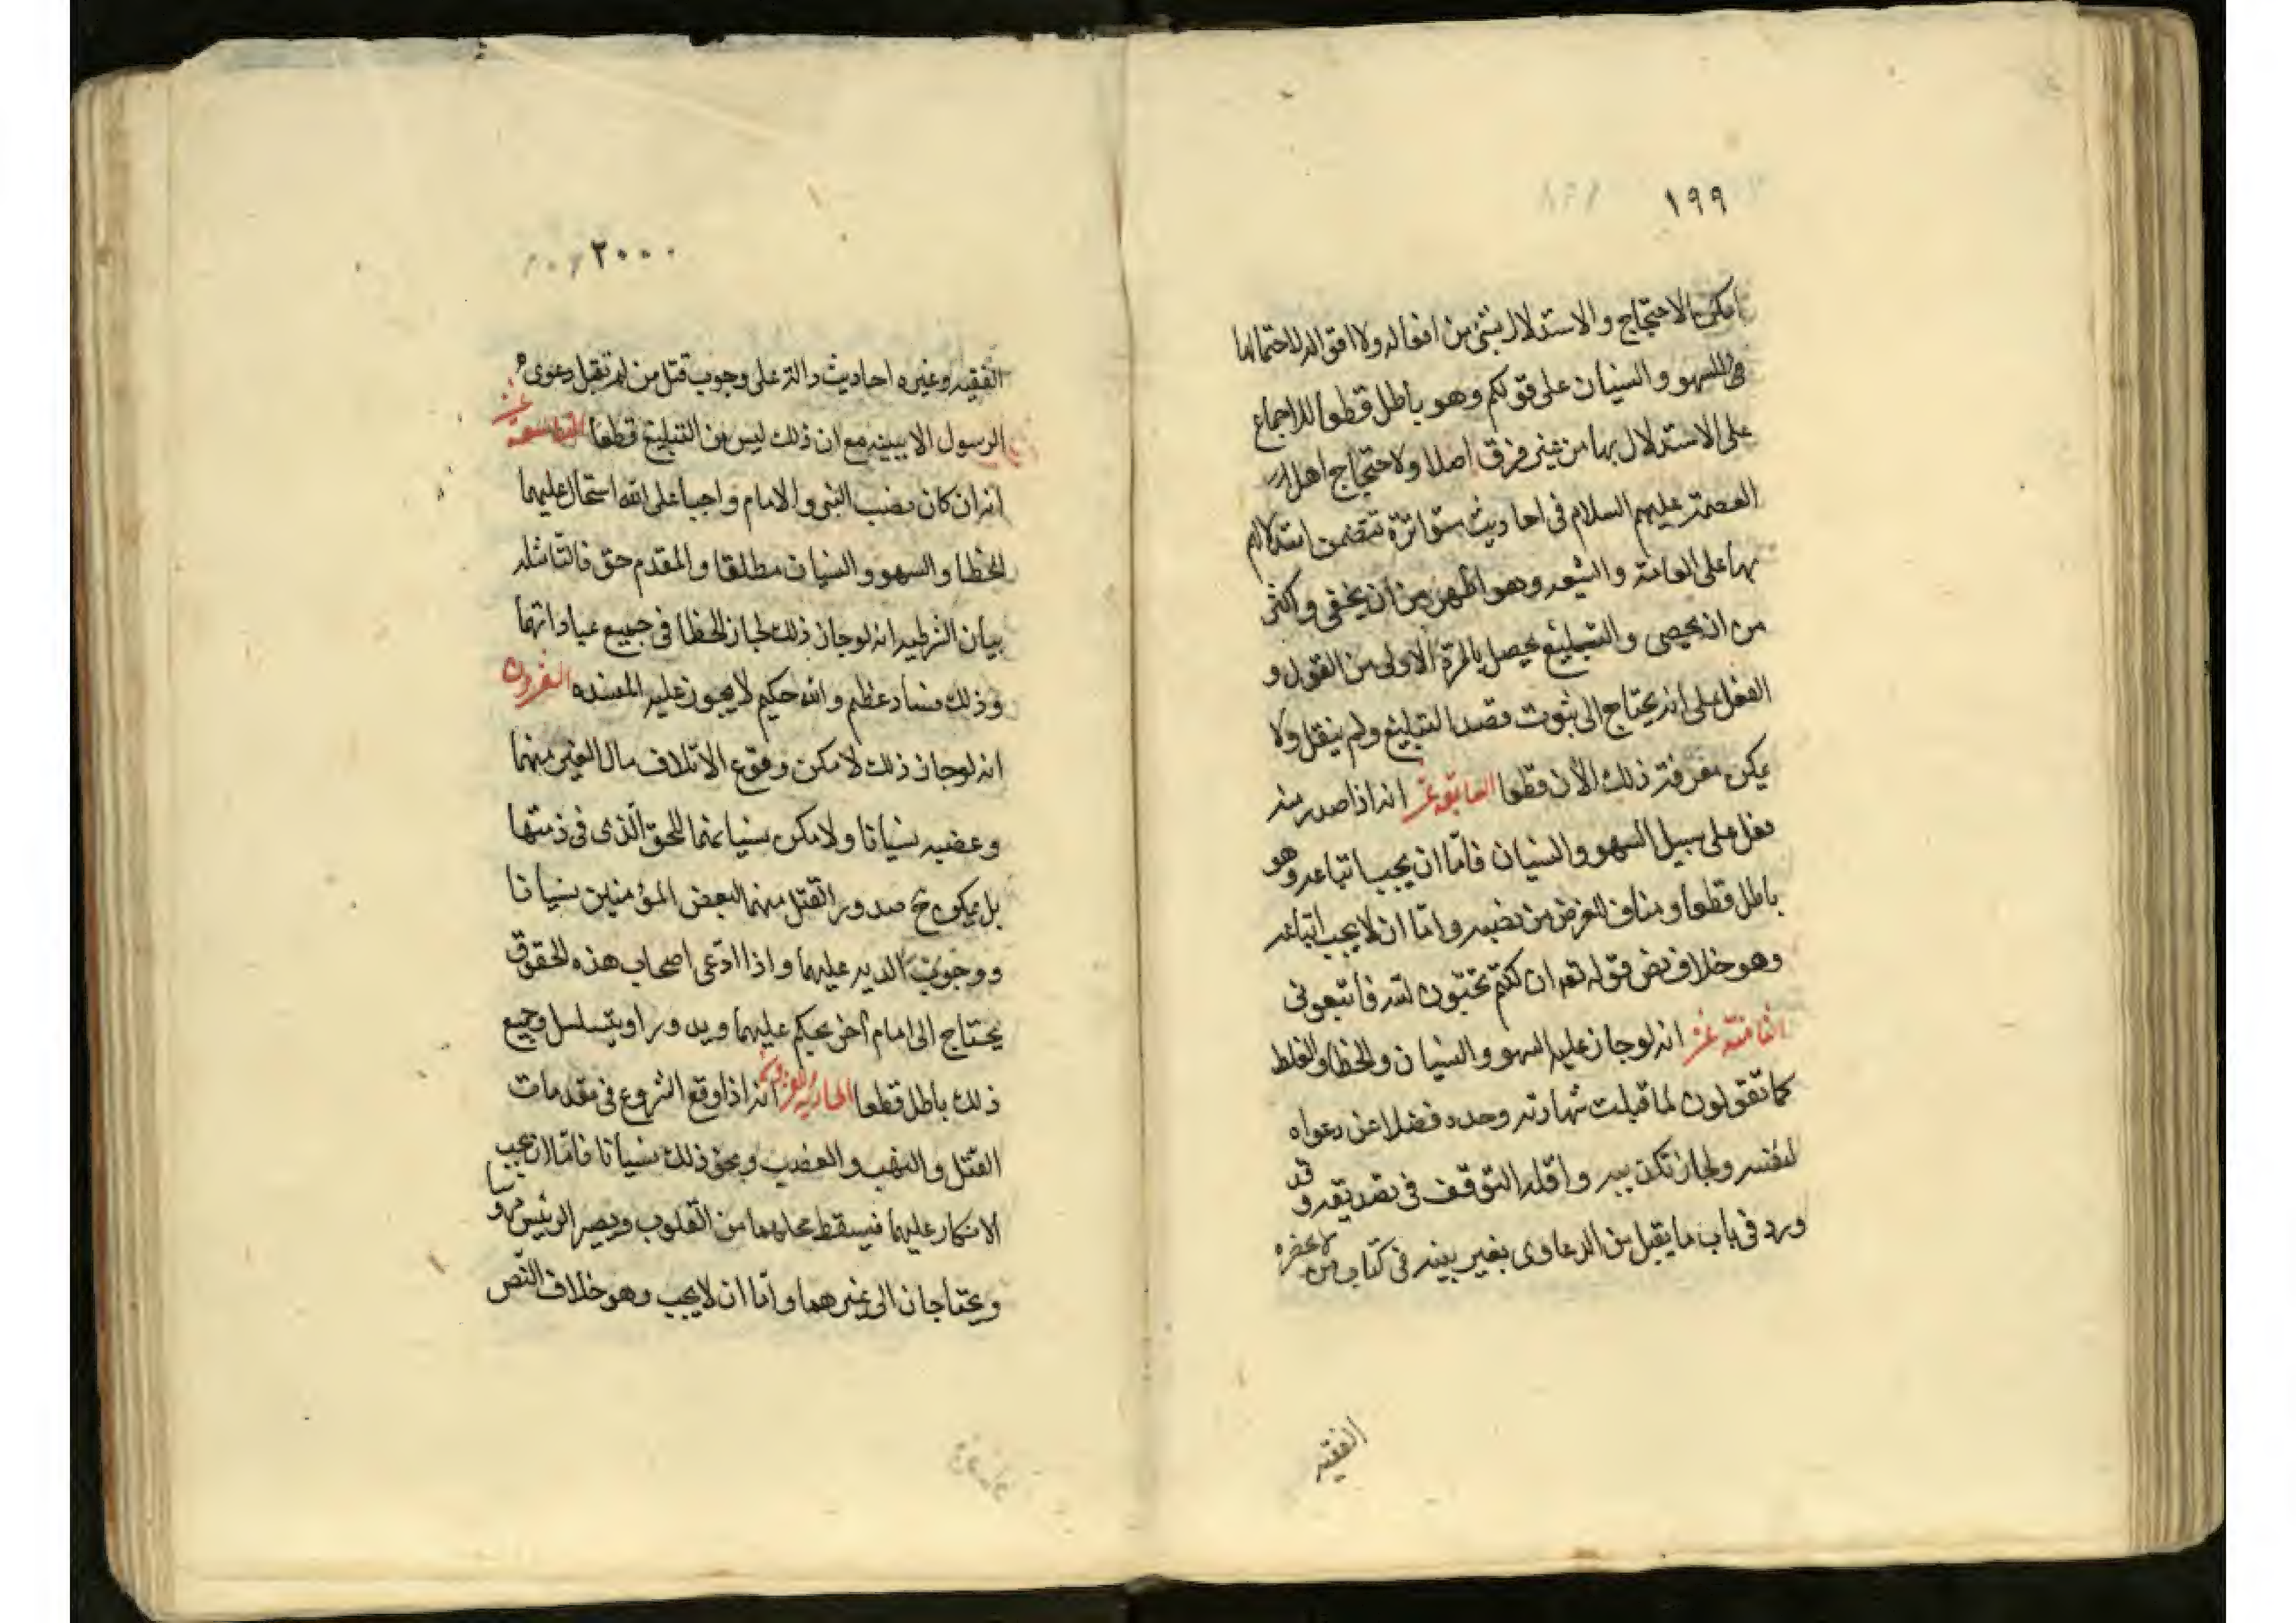 ١٩٩
امكن الاحتجاج والاستدلال بشئ من افعاله ولا اقواله لاحتمالها
للسهو والنسيان على قولكم وهو باطل قطعا للاجماع
على الاستدلال بها من غير فرق اصلا ولاحتجاج اهل
العصمة عليهم السلام فى احاديث متواترة تتضمن استدلالهم
بها على العامة والشيعه وهو اظهر من ان يخفى واكثر
من ان يحصى والتبليغ يحصل بالمرة الاولى من القول و
الفعل على انه يحتاج الى ثبوت قصد التبليغ ولم ينقل ولا
يمكن معرفة ذلك الأن قطعا السابعة عشر انه اذا صدر منه
فعل على سبيل السهو والنسيان فامّا ان يجب اتباعه وهو
باطل قطعا ومناف للغرض من نصبه وامّا ان لا يجب اتباعه
وهو خلاف نص قوله تعم ان كنتم تحبّون الله فاتبعونى
الثامنة عشر انه لو جاز عليه السهو والنسيان والخطا والغلط
كما تقولون لما قبلت شهادته وحده فضلا عن دعواه
لنفسه ولجاز تكذيبه واقله التوقف فى تصديقه وقد
ورد فى باب ما يقبل من الدعاوى بغير بينه فى كتاب من لا يحضره
الفقيه
٢٠٠
الفقيه وغيره احاديث دالة على وجوب قتل من لم تقبل دعوى
الرسول الا ببينه مع ان ذلك ليس من التبليغ قطعا التاسعة عشر
انه ان كان نصب النبى والامام واجبا على الله استحال عليهما
الخطا والسهو والنسيان مطلقا والمقدم حق فالتالى مثله
بيان الشرطيه انه لو جاز ذلك لجاز الخطا فى جميع عباداتهما
وذلك فساد عظيم والله حكيم لا يجوز عليه المفسده العشرون
انه لو جاز ذلك لامكن وقوع الاتلاف مال الغير منهما
وغصبه نسيانا ولامكن نسيانهما للحق الذى فى ذمتهما
بل يمكن ح صدور القتل منهما لبعض المؤمنين نسيانا
ووجوب الديه عليهما واذا ادّعى اصحاب هذه الحقوق
يحتاج الى امام آخر يحكم عليهما ويدور او يتسلسل وجميع
ذلك باطل قطعا الحادية والعشرون انه اذا وقع الشروع فى مقدمات
القتل والنهب والغصب ونحو ذلك نسيانا فامّا ان يجب
الانكار عليهما فيسقط محلهما من القلوب ويصير الرئيس مرؤسا
ويحتاجان الى غيرهما وامّا ان لا يجب وهو خلاف النّص